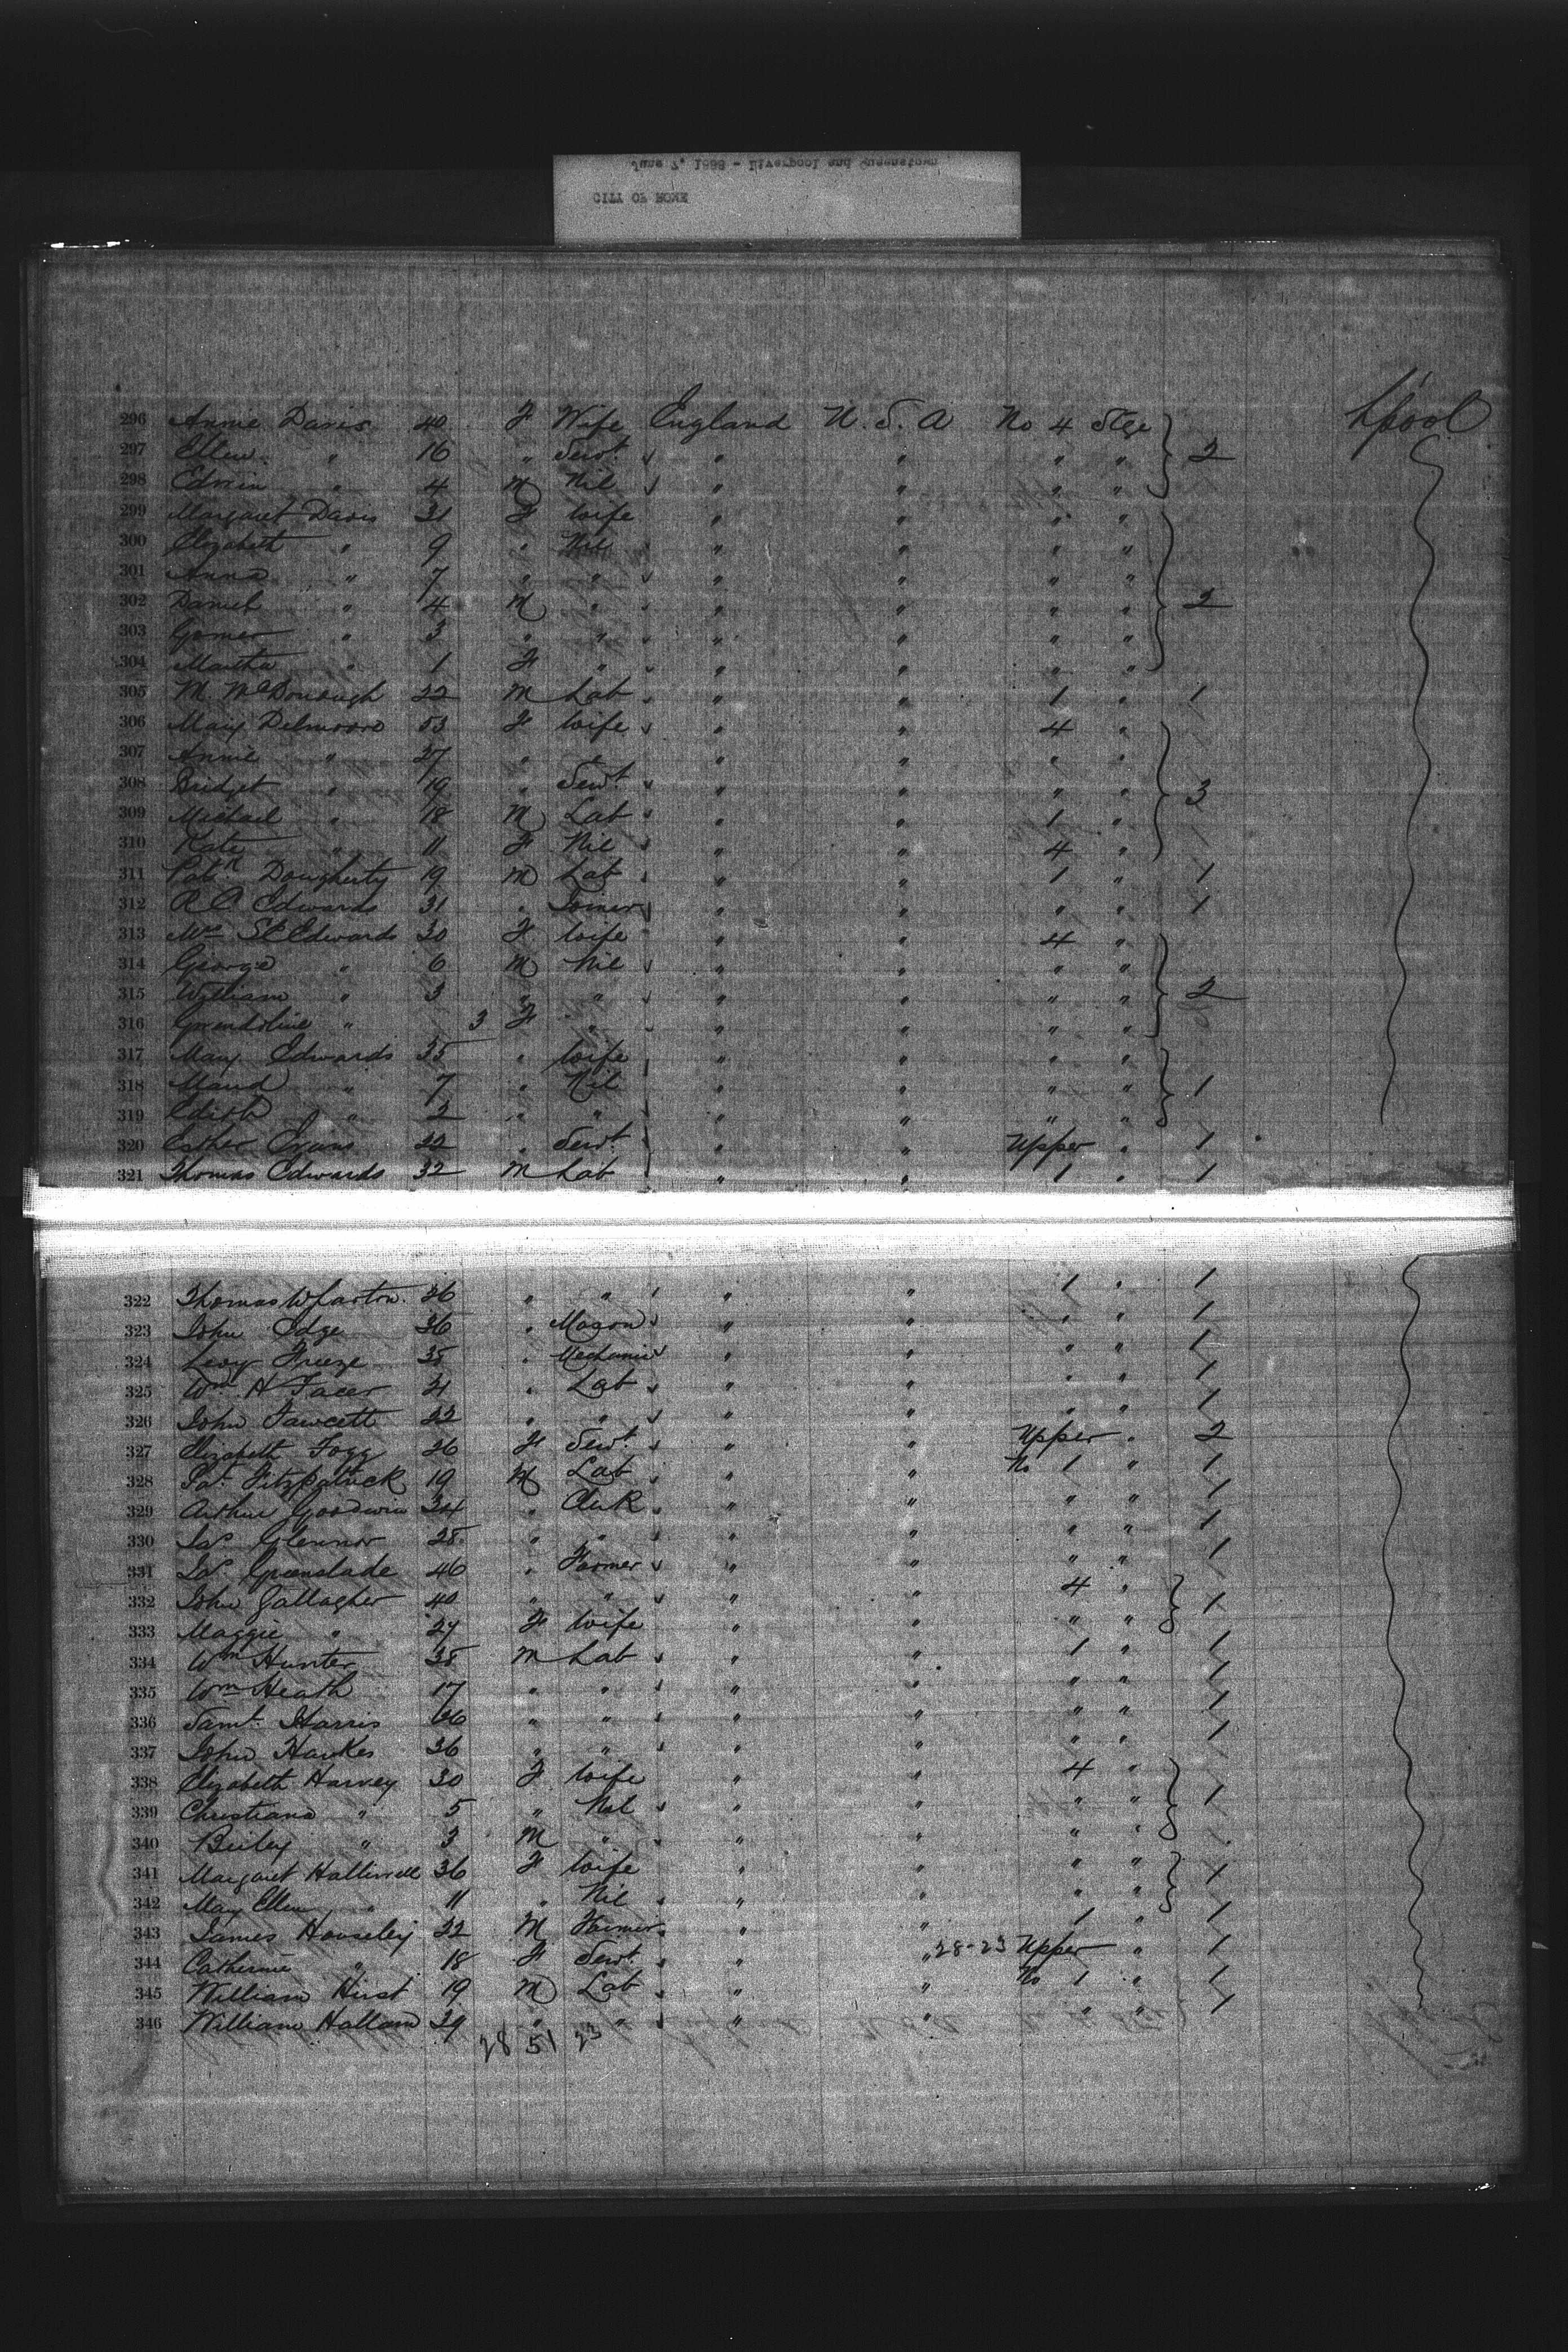 June 7, 1888 - Liverpool and Queenstown
CITY OF ROME
296 Annie Davis 40 F Wife England U.S.A No 4 Stge 2 L'pool
297 Ellen " 16 " Servt " " " "
298 Edwin " 4 M Nil " " " "
299 Margaret Davis 31 F Wife " " " "
300 Elizabeth " 9 " Nil " " " "
301 Anna " 7 " " " " " "
302 Daniel " 4 M " " " " " 2
303 Gomer " 3 " " " " " "
304 Martha " 1 F " " " " "
305 M. McDonough 22 M Lab " " 1 " 1
306 Mary Delmoore 53 F Wife " " 4 "
307 Annie " 27 " " " " " "
308 Bridget " 19 " Servt " " " " 3
309 Michael " 18 M Lab " " 1 "
310 Kate " 11 F Nil " " 4 "
311 Patk Dougherty 19 M Lab " " 1 " 1
312 R C Edwards 31 " Joiner " " " " 1
313 Mrs Edwards 30 F Wife " " 4 "
314 George " 6 M Nil " " " "
315 William " 3 " " " " " " 2
316 Gwendoline " 3 F " " " " "
317 Mary Edwards 35 " Wife " " " "
318 Maud " 7 " Nil " " " " 1
319 Edith " 2 " " " " " "
320 Esther Evans 22 " Servt " " Upper " 1
321 Thomas Edwards 32 M Lab " " 1 " 1
322 Thomas Wharton 26 " " " " 1 " 1
323 John Edge 36 " Mason " " " " 1
324 Levy Freeze 35 " Mechanic " " " " 1
325 Wm H Facer 21 " Lab " " " " 1
326 John Fawcett 22 " " " " " " 1
327 Elizabeth Fogg 26 F Servt " " Upper " 2
328 Pat. Fitzpatrick 19 M Lab " " No 1 " 1
329 Arthur Goodwin 24 " Clerk " " " " 1
330 Jas Glennor 28 " " " " " " 1
331 Js. Greenslade 46 " Farmer " " " " 1
332 John Gallagher 40 " " " " 4 " 1
333 Maggie " 27 F Wife " " " "
334 Wm Hunter 38 M Lab " " 1 " 1
335 Wm Heath 17 " " " " " " 1
336 Saml. Harris 26 " " " " " " 1
337 John Hawkes 36 " " " " " " 1
338 Elizabeth Harvey 30 F Wife " " 4 "
339 Christiana " 5 " Nil " " " " 1
340 " 3 M " " " " "
341 Margaret Halliwell 36 F Wife " " " " 1
342 May Ellen " 11 " Nil " " " "
343 James Houseley 22 M Farmer " " 1 " 1
344 Catherine " 18 F Servt " " 28-23 Upper " 1
345 William Hirst 19 M Lab " " No 1 " 1
346 William Hallam 39 " " " " " " 1
28 51 23